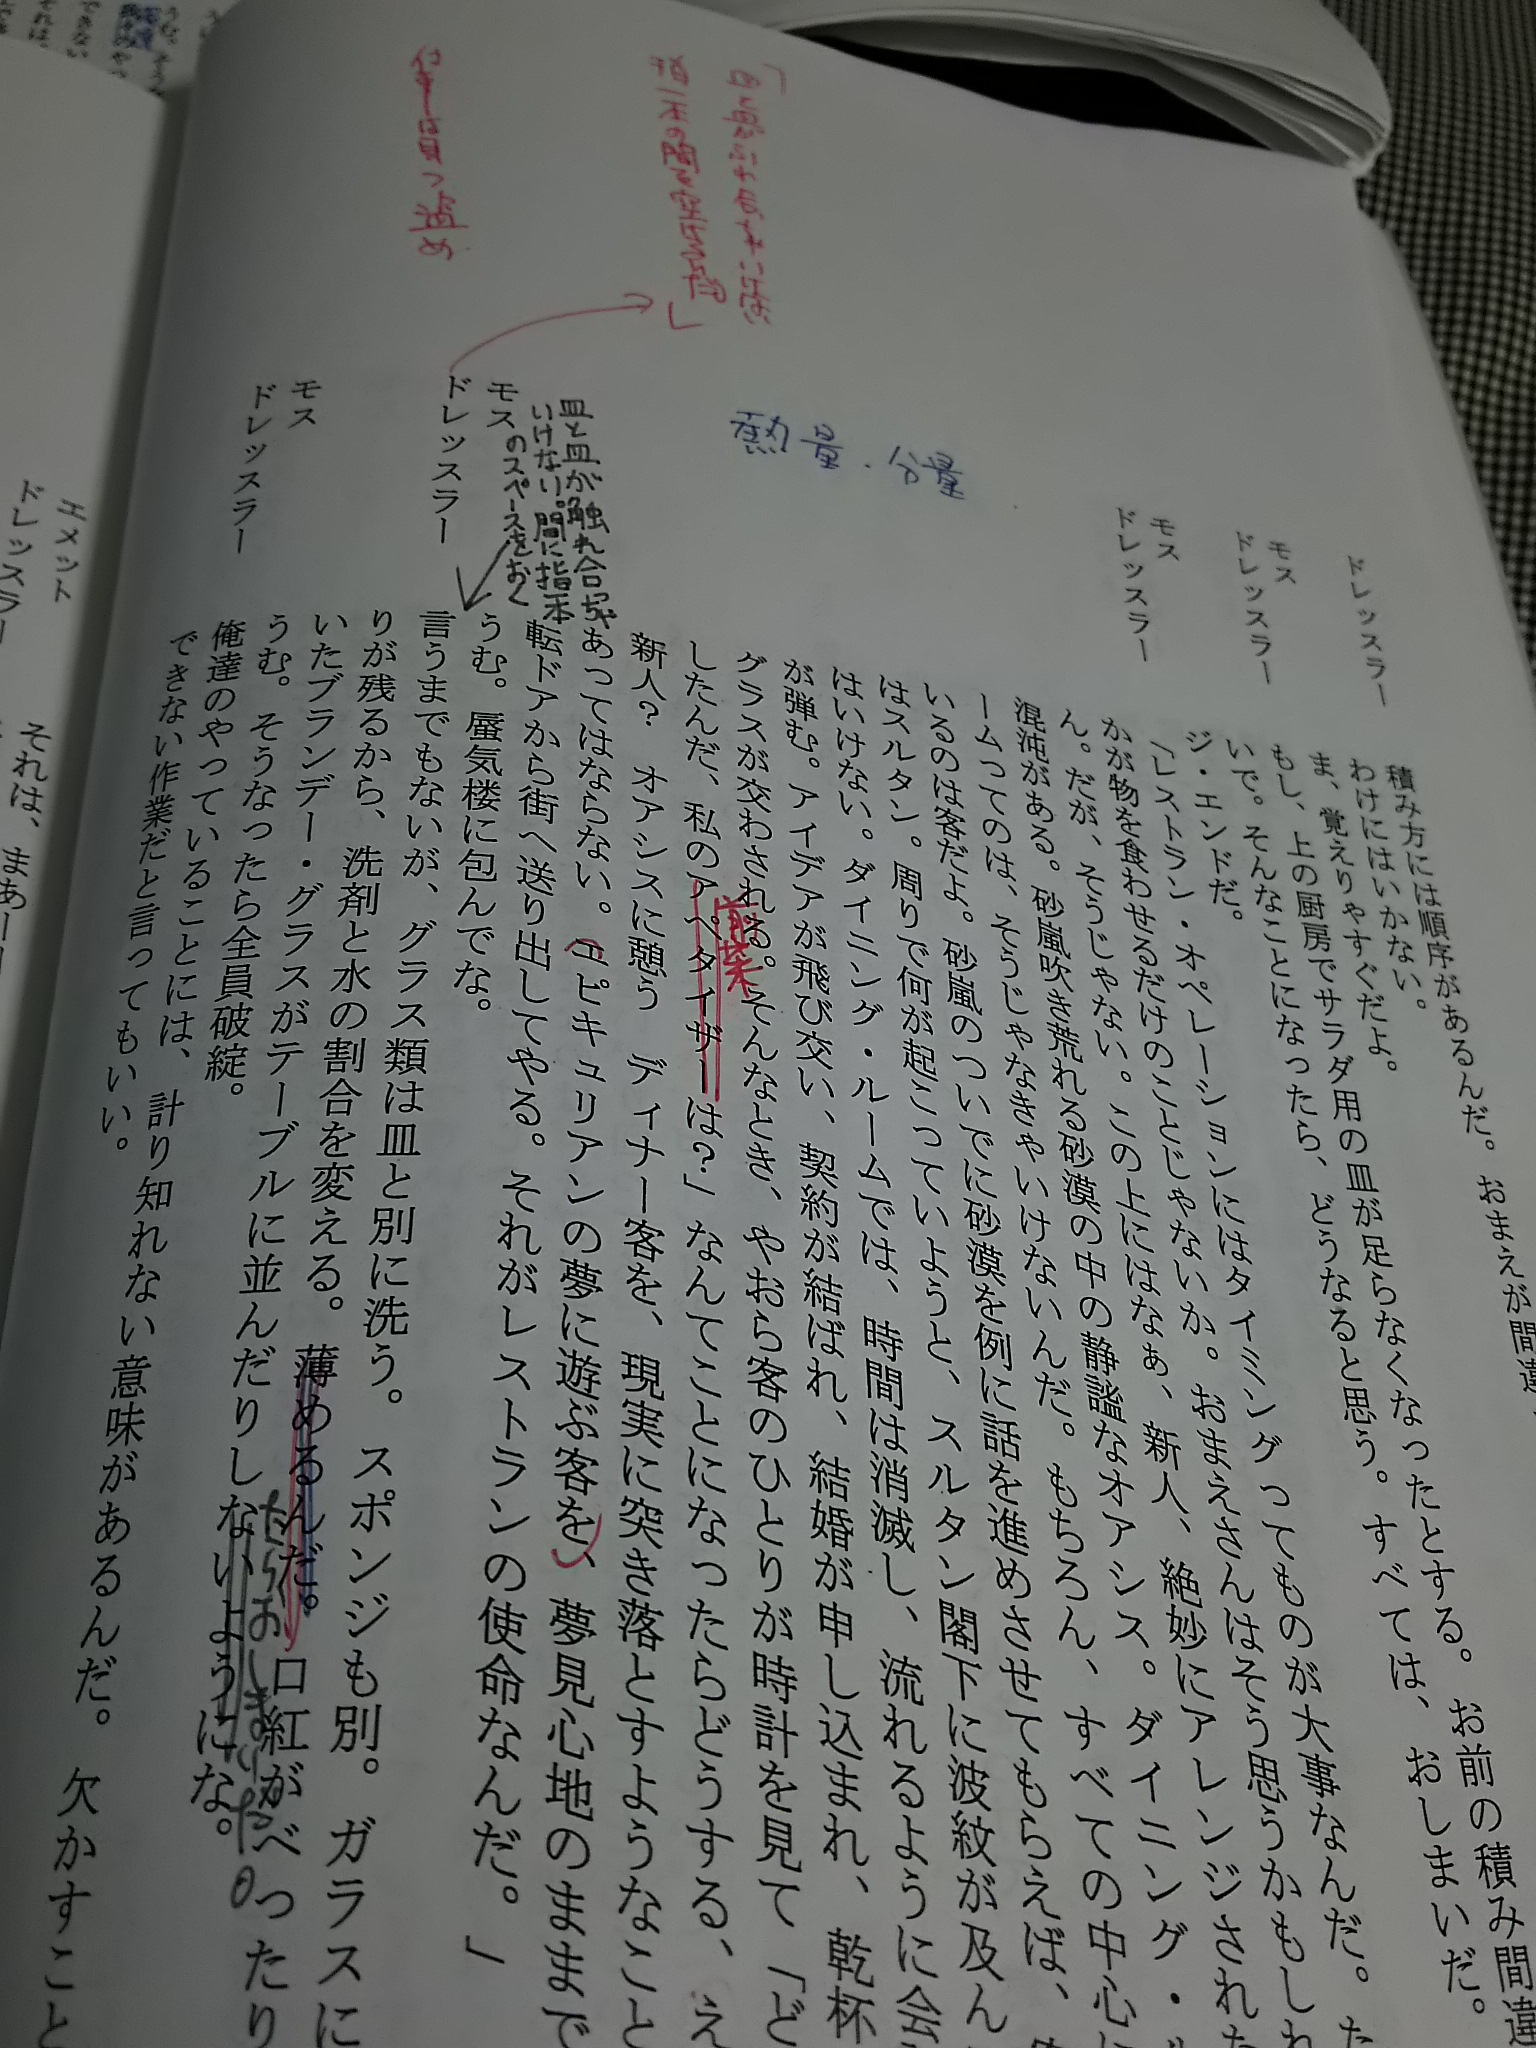 積み方には順序があるんだ。おまえが間違
わけにはいかない。
ドレッスラー
ま、覚えりゃすぐだよ。
もし、上の厨房でサラダ用の皿が足らなくなったとする。お前の積み間違
いで。そんなことになったら、どうなると思う。すべては、おしまいだ。
モス
ジ・エンドだ。
ドレッスラー
「レストラン・オペレーションにはタイミングってものが大事なんだ。た
かが物を食わせるだけのことじゃないか。おまえさんはそう思うかもしれ
モス
ん。だが、そうじゃない。この上にはなぁ、新人、絶妙にアレンジされた
ドレッスラー
混沌がある。砂嵐吹き荒れる砂漠の中の静謐なオアシス。ダイニング・ル
ームってのは、そうじゃなきゃいけないんだ。もちろん、すべての中心に
いるのは客だよ。砂嵐のついでに砂漠を例に話を進めさせてもらえば、
はスルタン。周りで何が起こっていようと、スルタン閣下に波紋が及ん
はいけない。ダイニング・ルームでは、時間は消滅し、流れるように会
が弾む。アイデアが飛び交い、契約が結ばれ、結婚が申し込まれ、乾杯
グラスが交わされる。そんなとき、やおら客のひとりが時計を見て「ど
したんだ、私のアペタイザーは？」なんてことになったらどうする、え
前菜
新人？　オアシスに憩う　ディナー客を、現実に突き落とすようなこと
あってはならない。エピキュリアンの夢に遊ぶ客を、夢見心地のままで
転ドアから街へ送り出してやる。それがレストランの使命なんだ。」
熱量・分量
皿と皿が触れ合っちゃ
いけない。間に指一本
のスペースをおく
モス
うむ。蜃気楼に包んでな。
ドレッスラー
言うまでもないが、グラス類は皿と別に洗う。スポンジも別。ガラスに
りが残るから、洗剤と水の割合を変える。薄めるんだ。口紅がべったり
いたブランデー・グラスがテーブルに並んだりしないようにな。
たらおしまいだ
モス
うむ。そうなったら全員破綻。
ドレッスラー
俺達のやっていることには、計り知れない意味があるんだ。欠かすこと
できない作業だと言ってもいい。
エメット
ドレッスラー
それは、まあー